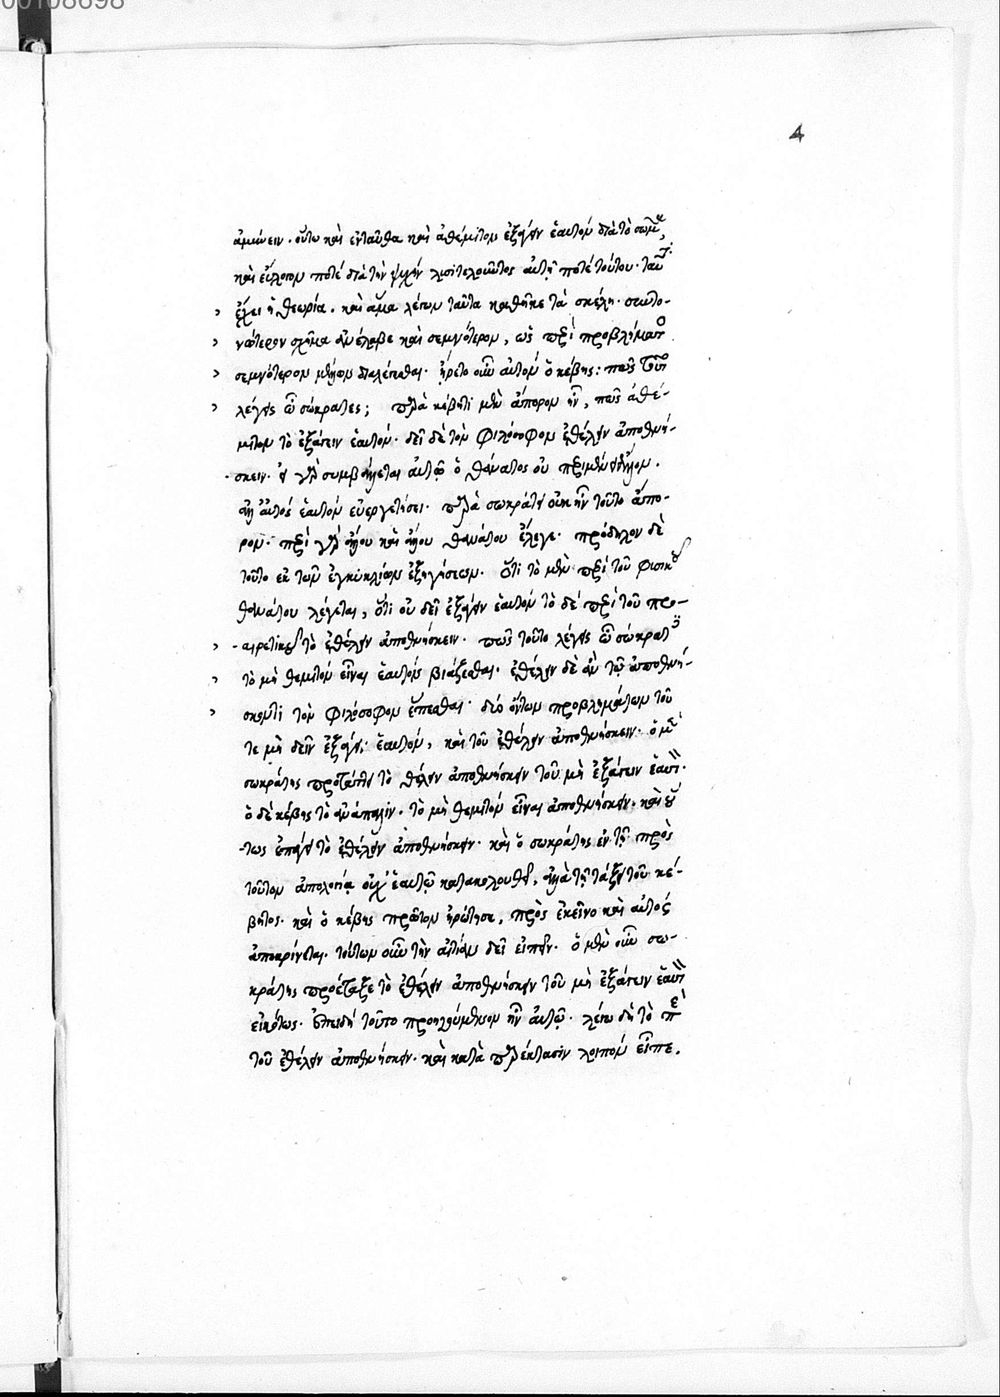 00108698
4
ἀμύνειν. οὕτω καὶ ἐνταῦθα καὶ ἀθέμιτον ἐξάγειν ἑαυτὸν διὰ τὸ σῶμα,
καὶ εὔλογον ποτὲ διὰ τὴν ψυχήν λυσιτελοῦντος αὐτῇ ποτὲ τούτου. ταῦτ
ἔχει ἡ θεωρία. καὶ ἅμα λέγων ταῦτα καθῆκε τὰ σκέλη. στατο-
νώτερον σχῆμα ἀνέλαβε καὶ σεμνότερον, ὡς περὶ προβλήματο
σεμνότερον μέλλων διαλέγεσθαι. ἤρετο οὖν αὐτὸν ὁ κέβης: πῶς τοῦτο
λέγεις ὦ σώκρατες; παρὰ κέβητι μὲν ἄπορον ἦν, πῶς ἀθέ-
μιτον τὸ ἐξάγειν ἑαυτόν. δεῖ δὲ τὸν φιλόσοφον ἐθέλειν ἀποθνή-
σκειν. εἰ γὰρ συμβάλλεται αὐτῷ ὁ θάνατος οὐ περιμενεῖ ἄλλον.
ἀλλ' αὐτὸς ἑαυτὸν εὐεργετήσει. παρὰ σωκράτει οὐκ ἦν τοῦτο ἄπο-
ρον. περὶ γὰρ ἄλλου καὶ ἄλλου θανάτου ἔλεγε. πρόδηλον δὲ
τοῦτο ἐκ τῶν ἐγκυκλίων ἐξηγήσεων. ὅτι τὸ μὲν περὶ τοῦ φυσικοῦ
θανάτου λέγεται, ὅτι οὐ δεῖ ἐξάγειν ἑαυτὸν τὸ δὲ περὶ τοῦ προ-
-αιρετικοῦ τὸ ἐθέλειν ἀποθνήσκειν. πῶς τοῦτο λέγεις ὦ σώκρατες
τὸ μὴ θεμιτὸν εἶναι ἑαυτὸν βιάζεσθαι. ἐθέλειν δὲ ἂν τῷ ἀποθνή-
σκοντι τὸν φιλόσοφον ἕπεσθαι. δύο ὄντων προβλημάτων τοῦ
τε μὴ δεῖν ἐξάγειν ἑαυτόν, καὶ τοῦ ἐθέλειν ἀποθνήσκειν. ὁ μὲν
σωκράτης προτάττει τὸ θέλειν ἀποθνήσκειν τοῦ μὴ ἐξάγειν ἑαυτὸν.
ὁ δὲ κέβης τὸ ἀνάπαλιν. τὸ μὴ θεμιτὸν εἶναι ἀποθνήσκειν. καὶ οὕ
-τως ἐπάγει τὸ ἐθέλειν ἀποθνήσκειν. καὶ ὁ σωκράτης ἐν τῇ πρὸς
τοῦτον ἀπολογίᾳ οὐχ' ἑαυτῷ κατακολουθεῖ, ἀλλὰ τῇ τάξει τοῦ κέ-
βητος. καὶ ὃ κέβης πρῶτον ἠρώτησε, πρὸς ἐκεῖνο καὶ αὐτὸς
ἀποκρίνεται. τούτων οὖν τὴν αἰτίαν δεῖ εἰπεῖν. ὁ μὲν οὖν σω-
κράτης προέταξε τὸ ἐθέλειν ἀποθνήσκειν τοῦ μὴ ἐξάγειν ἑαυτὸν
εἰκότως. ἐπειδὴ τοῦτο προηγούμενον ἦν αὐτῷ. λέγω δὴ τὸ περὶ
τοῦ ἐθέλειν ἀποθνήσκειν. καὶ κατὰ παρέκτασιν λοιπὸν εἶπε.